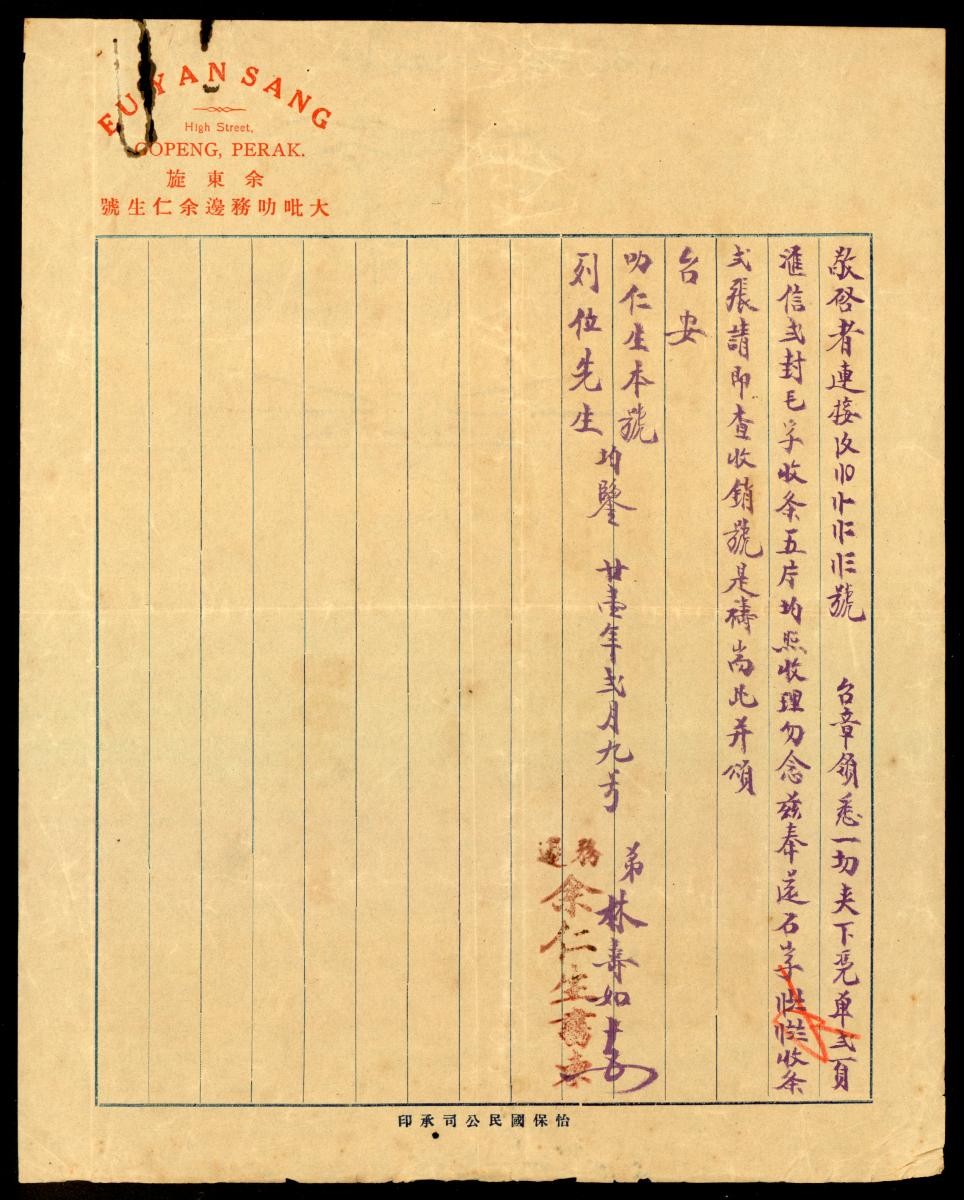 EU YAN SANG
High Street,
GOPENG, PERAK.
余東旋
大吡叻務邊余仁生號
敬啓者連接
號 台章領悉一切夾下凭單弍頁
滙信弍封毛字收条五片均照收理勿念兹奉返石字 收条
弍張請即查收銷號是禱耑此并頌
台安
叻仁生本號
列位先生
均鑒 廿壹年弍月九号
弟林壽如
務邊
余仁生舊柬
怡保國民公司承印